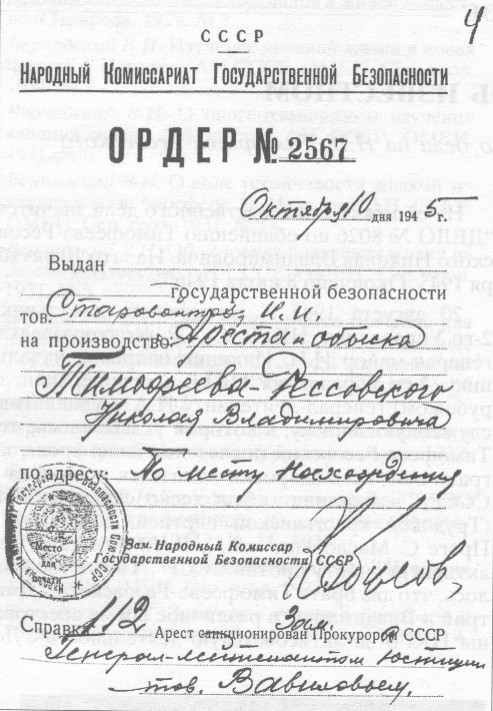 4
СССР
НАРОДНЫЙ КОМИССАРИАТ ГОСУДАРСТВЕННОЙ БЕЗОПАСНОСТИ
ОРДЕР № 2567
Октября 10 дня 1945 г.
Выдан
государственной безопасности
тов. Старовантроз И. И.
на производство: Ареста и обыска
Тимофеева-Рессовского
Николая Владимировича
по адресу: По месту нахождения
Место для печати
Зам. Народный Комиссар
Государственной Безопасности СССР
Справка: 1/2. Арест санкционирован Зам. Прокурором СССР
Генерал-лейтенантом юстиции
тов. Вавиловым.